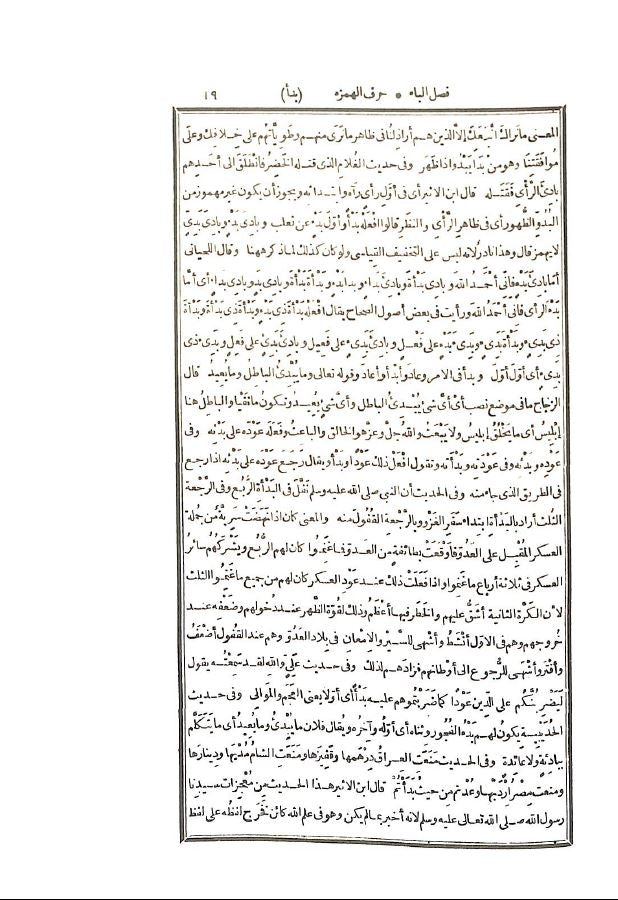 فصل الباء * حرف الهمزه (بدأ) ١٩
المعنى مانراك اتَّبَعَكَ إلاَّ الذين هم أراذلنا فى ظاهر مانرى منهم وطويَّاتهم على خلافك وعلى
مُوافَقَتنا وهو منْ بَدَا يَبْدُو اذا ظَهَر وفى حديث الغُلام الذى قتله الخَضِرُ فانْطَلَقَ الى أحدهم
بادِئَ الرَّأْىِ فقَتَله قال ابن الاثير أى فى أوّل رأى رآه وابتدائه ويجوز أن يكون غير مهموز من
البُدُوّ الظُّهور أى فى ظاهر الرَّأْىِ والنظر قالوا افعَلْه بَدْأً وأوّلَ بَدْءٍ عن ثعلب وبادِىَ بَدْءٍ وبادِىَ بَدِىٍّ
لايهمز قال وهذا نادرٌ لانه ليس على التخفيف القياسى ولو كان كذلك لما ذكر ههنا وقال اللحيانى
أمّا بادِئَ بَدْءٍ فانِّى أَحْمَدُ الله وبادِى بَدْأَةَ وبادِئَ بداء وبدا بَدْءٍ وبَدْأَةَ بَدْأَةَ وبادِىَ بَدْوٍ وبادِى بَداء أى أمّا
بَدْءَ الرأى فانِّى أَحْمَدُ الله ورأيت فى بعض أصول الصحاح يقال افْعَلْه بَدْأَةَ ذى بَدْءٍ وبَدْأَةَ ذى بَدْأَةَ وبَدْأَةَ
ذى بَدِىءٍ وبَدْأَةَ بَدِىءٍ وبَدِىءَ بَدْءٍ على فَعْل وبادِئَ بَدِىءٍ على فَعِيل وبادِئَ بَدِئٍ على فَعِلٍ وبَدِىءَ ذى
بَدِىءٍ أى أوّلَ أوّلَ وبدأ فى الامر وعاد وأبدأ وأعاد وقوله تعالى وما يُبْدِئُ الباطل وما يعيد قال
الزجاج ما فى موضع نصب أى أىَّ شئ يُبْدِئُ الباطل وأىَّ شئ يُعِيدُ وتكون ما نَفْيا والباطل هنا
إبْلِيس أى ما يَخْلُقُ إبليس ولا يَبْعَثُ والله جلَّ وعزَّ هو الخالق والباعثُ وفَعَلَه عَوْدَه على بَدْئِه وفى
عَوْدِه وبَدْئِه وفى عَوْدَته وبَدْأَته وتقول افْعَلْ ذلك عَوْدًا وبدأً ويقال رَجَعَ عَوْدَه على بَدْئِه اذا رجع
فى الطريق الذى جاء منه وفى الحديث أن النبى صلى الله عليه وسلم نَفَّلَ فى البَدْأَة الرُّبُعَ وفى الرَّجْعة
الثُلث أراد بالبَدْأَة ابتداء سَفَر الغَزْو وبالرَّجْعة القُفُول منه والمعنى كان اذا نَهَضَتْ سَرِيَّةٌ من جُملة
العسكر المُقْبِل على العَدُوّ فأَوْقَعَتْ بطائفةٍ من العدوّ فما غَنِمُوا كان لهم الرُّبُع ويَشْرَكُهُم سائر
العسكر فى ثلاثة أرباع ما غنموا واذا فَعَلَتْ ذلك عند عَوْد العسكر كان لهم من جميع ما غَنِمُوا الثلث
لأن الكَرَّة الثانية أَشَقُّ عليهم والخَطَر فيها أَعْظم وذلك لقوّة الظهر عند دُخولهم وضَعْفه عند
خُروجهم وهم فى الاوّل أَنْشَطُ وأَشْهَى للسَّيْر والإمْعان فى بلاد العَدُوّ وهم عند القُفُول أضْعَفُ
وأفْتَرُ وأشْهَى للرُّجوع الى أوْطانهم فزادهم لذلك وفى حديث علىٍّ والله لقد سَمِعْتُه يقول
لَيَضْرِبُنَّكُم على الدِّين عَوْدًا كما ضَرَبْتُموهم عليه بَدْأً أى أوَّلا يعنى العجَم والموالى وفى حديث
الحُدَيْبِيَة يكونُ لهم بَدْءُ الفُجُور وثَناه أى أوّلُه وآخرُه ويقال فلان ما يُبْدِئُ وما يُعِيدُ أى ما يَتَكَلَّم
ببادِئَةٍ ولا عائدة وفى الحديث مَنَعَت العراقُ دِرْهَمها وقَفِيزَها ومَنَعَت الشامُ مُدْيَها ودينارَها
ومنعت مِصْرُ إرْدَبَّها وعُدْتم من حيثُ بَدَأْتُمْ قال ابن الاثير هذا الحديث من مُعْجِزات سيدنا
رسول الله صلى الله تعالى عليه وسلم لانه أخبر بما لم يكن وهو فى علم الله كائن فَخَرج لفظُه على لفظ